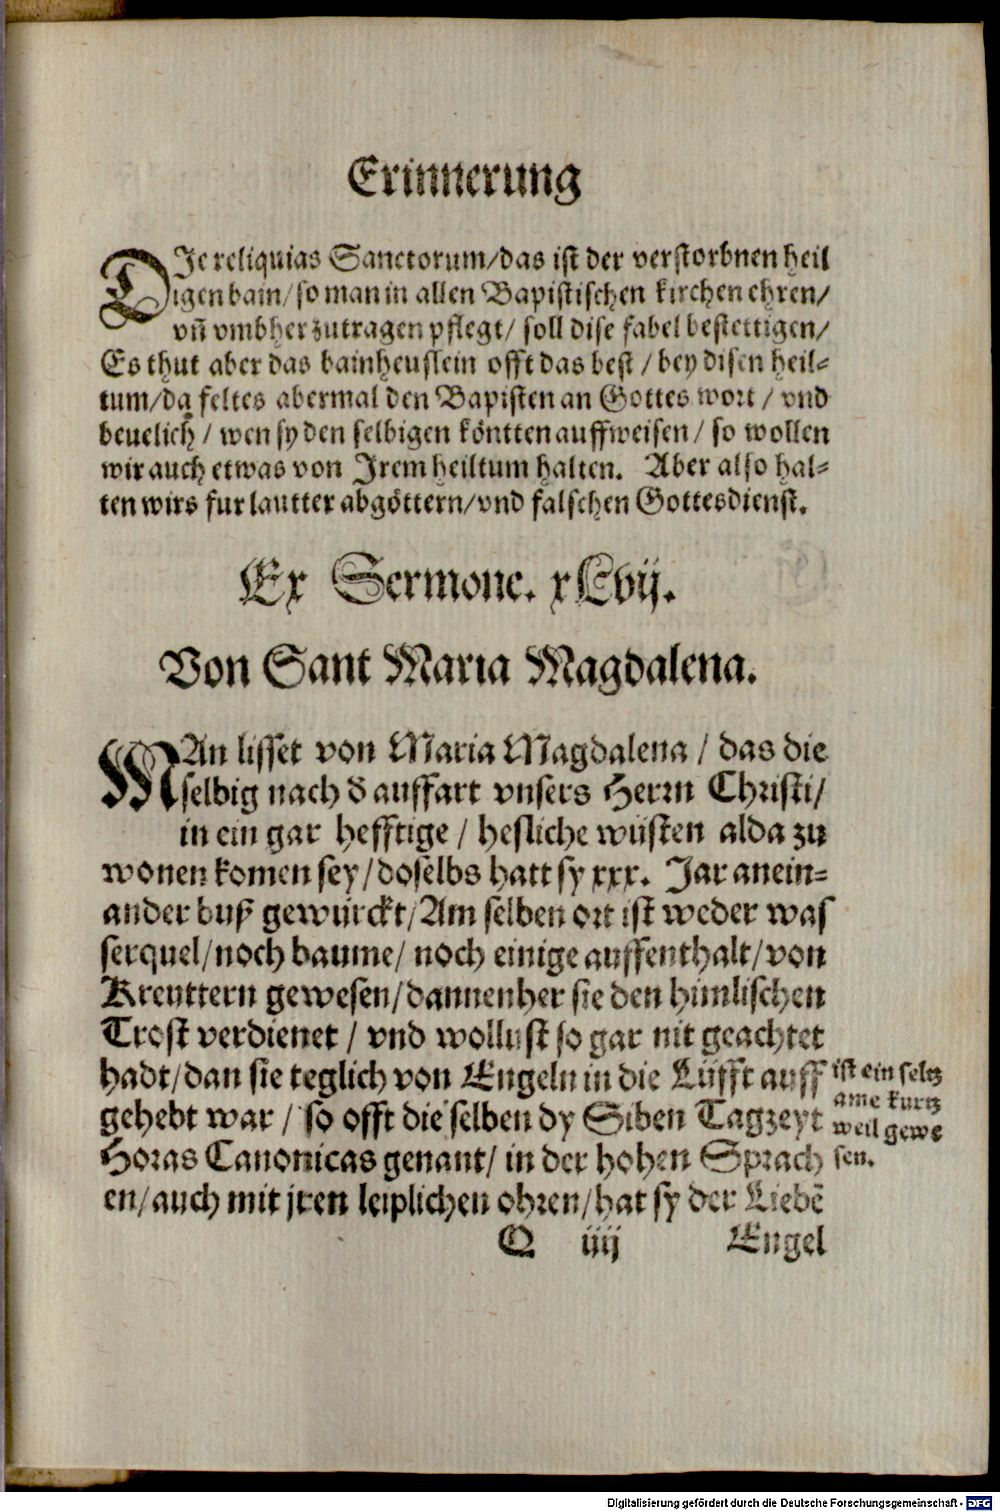 Erinnerung
DIe reliquias Sanctorum/das ist der verstorbnen heil
igen bain/so man in allen Bapistischen kirchen ehren/
vn̄ vmbher zutragen pflegt/ soll dise fabel bestettigen/
Es thut aber das bainheuslein offt das best / bey disen heil-
tum/da feltes abermal den Bapisten an Gottes wort / vnd
beuelich / wen sy den selbigen köntten auffweisen / so wollen
wir auch etwas von Jrem heiltum halten. Aber also hal-
ten wirs fur lautter abgöttern/vnd falschen Gottesdienst.
Ex Sermone. xLvij.
Von Sant Maria Magdalena.
MAn lisset von Maria Magdalena / das die
selbig nach d auffart vnsers Herrn Christi/
in ein gar hefftige / hesliche wüsten alda zu
wonen komen sey/doselbs hatt sy xxx. Jar anein-
ander buß gewürckt/Am selben ort ist weder was
serquel/noch baume/ noch einige auffenthalt/von
Kreuttern gewesen/dannenher sie den himlischen
Trost verdienet / vnd wollust so gar nit geachtet
hadt/dan sie teglich von Engeln in die Lüfft auff
gehebt war / so offt die selben dy Siben Tagzeyt
Horas Canonicas genant/ in der hohen Sprach
en/auch mit jren leiplichen ohren/hat sy der Liebē
ist ein seltz
ame kurtz
weil gewe
sen.
Q iiij Engel
Digitalisierung gefördert durch die Deutsche Forschungsgemeinschaft - DFG